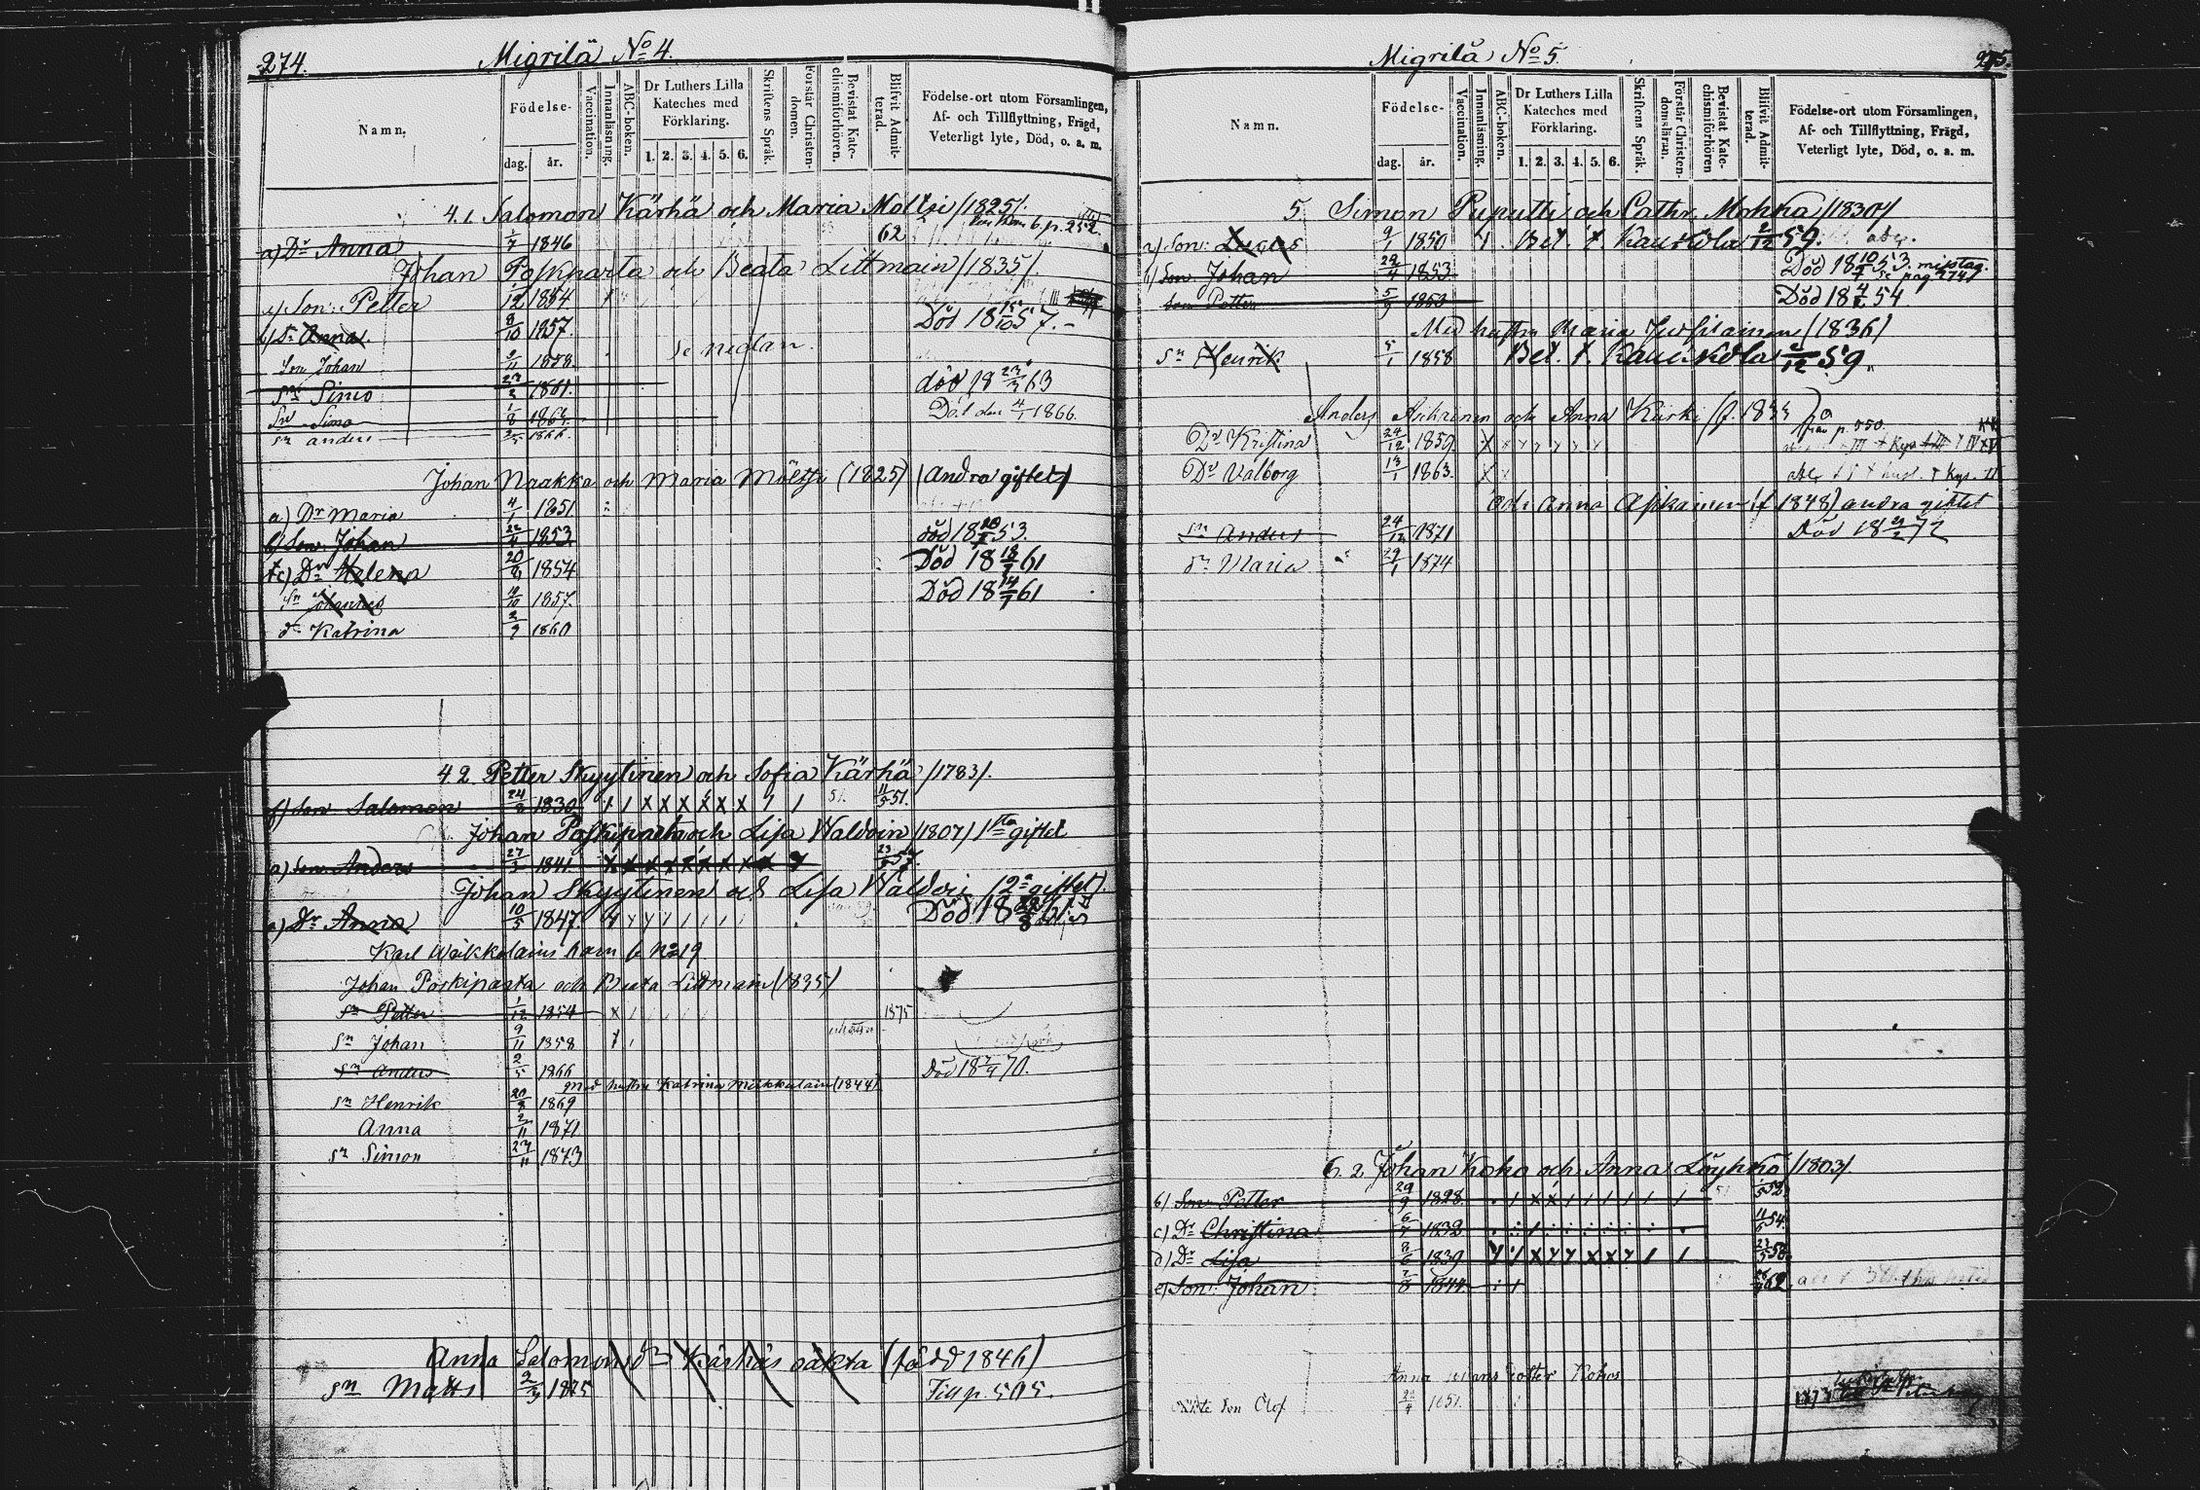 274.
Migrilä No 4.
Namn.
Födelse-
dag.
år.
Vaccination.
Innanläsning.
ABC-boken.
Dr Luthers Lilla
Kateches med
Förklaring.
1. 2. 3. 4. 5. 6.
Skriftens Språk.
Förstår Christen-
domen.
Bevistat Kate-
chismiförhören.
Blifvit Admit-
terad.
Födelse-ort utom Församlingen,
Af- och Tillflyttning, Frägd,
Veterligt lyte, Död, o. a. m.
4.1 Salomon Kärhä och Maria Möltsi /1825/.
a) Dr Anna 1/7 1846 62
Johan Poskiparta och Beata Littmain /1835/.
a) Son: Petter 1/12 1854
b) Dr Anna. 8/10 1857. Död 18 15/10 57.
Son Johan 9/11 1858 Se nedan.
Sn Simo 23/2 1861. död 18 23/3 63
Sn Simo 1/8 1864.
Sn Anders 2/5 1866 Död den 4/1 1866.
Johan Naakka och Maria Möltsi (1825) (Andra giftet)
a) Dr Maria 4/1 1851
b) Son: Johan 22/4 1853 död 18 10/7 53.
c) Dr Helena 20/8 1854 Död 18 18/7 61
Sn Johannes 4/10 1857. Död 18 14/7 61
dr Katrina 2/9 1860
4 2. Petter Skyytinen och Sofia Kärhä /1783/.
f) Son Salomon 24/8 1830 51. 11/5 51.
Johan Poskiparta och Lisa Waldoin /1807/ 1sta giftet
a) Son Anders 27/3 1841. 23/5 57.
Johan Skyytinen och Lisa Waldoi (2a giftet)
a) Dr Anna 10/5 1847. Död 18 22/8 61.
Karl Weikkolains barn fr No 19
Johan Poskiparta och Beata Lidman (1835)
Sn Petter 1/12 1854 1875
Sn Johan 9/11 1858
Sn Anders 2/5 1866 Död 18 2/9 70.
med hustru Katrina Mikkolain (1844)
Sn Henrik 20/8 1869
Anna 2/11 1871
Sn Simon 27/11 1873
Anna Salomons dr Kärhäs oäkta (född 1846)
Sn Matts 2/3 1875 Till p. 505.
275.
Migrilä No 5.
Namn.
Födelse-
dag.
år.
Vaccination.
Innanläsning.
ABC-boken.
Dr Luthers Lilla
Kateches med
Förklaring.
1. 2. 3. 4. 5. 6.
Skriftens Språk.
Förstår Christen-
domsläran.
Bevistat Kate-
chismiförhören
Blifvit Admit-
terad.
Födelse-ort utom Församlingen,
Af- och Tillflyttning, Frägd,
Veterligt lyte, Död, o. a. m.
5 Simon Puputti och Cathr. Mohka /1830/
a) Son: Lucas 9/1 1850 Bet. t. Kaukola 2/12 59.
b) Son Johan 22/4 1853 Död 18 10/7 53. misstag. se pag 274
Son Petter 5/9 1853 Död 18 4/2 54.
Med hustru Maria Jussilainen (1836)
Sn Henrik 5/1 1858 Bet. t. Kaukola 2/12 59.
Anders Asikainen och Anna Kurki från p. 550.
Dr Kristina 24/12 1859
Dr Valborg 13/1 1863.
och Anna Apkainen (f 1848) andra giftet
Sn Anders 24/12 1871
dr Maria 29/1 1874
6. 2. Johan Koho och Anna Löyhkö /1803/.
b) Son Petter 29/9 1828.
c) Dr Christina 6/7 1832
d) Dr Lisa 8/6 1839
e) Son: Johan 7/8 1844.
oäkte Son Olof 1851.